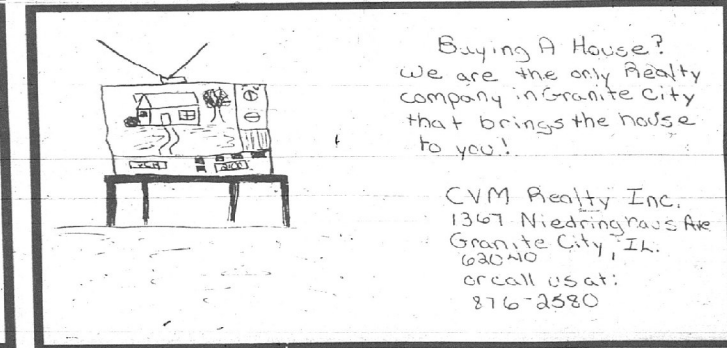 Buying A House?
We are the only Realty
company in Granite City
that brings the house
to you!
CVM Realty Inc.
1367 Niedringhaus Ave
Granite City, IL.
62040
or call us at:
876-2580
VCR